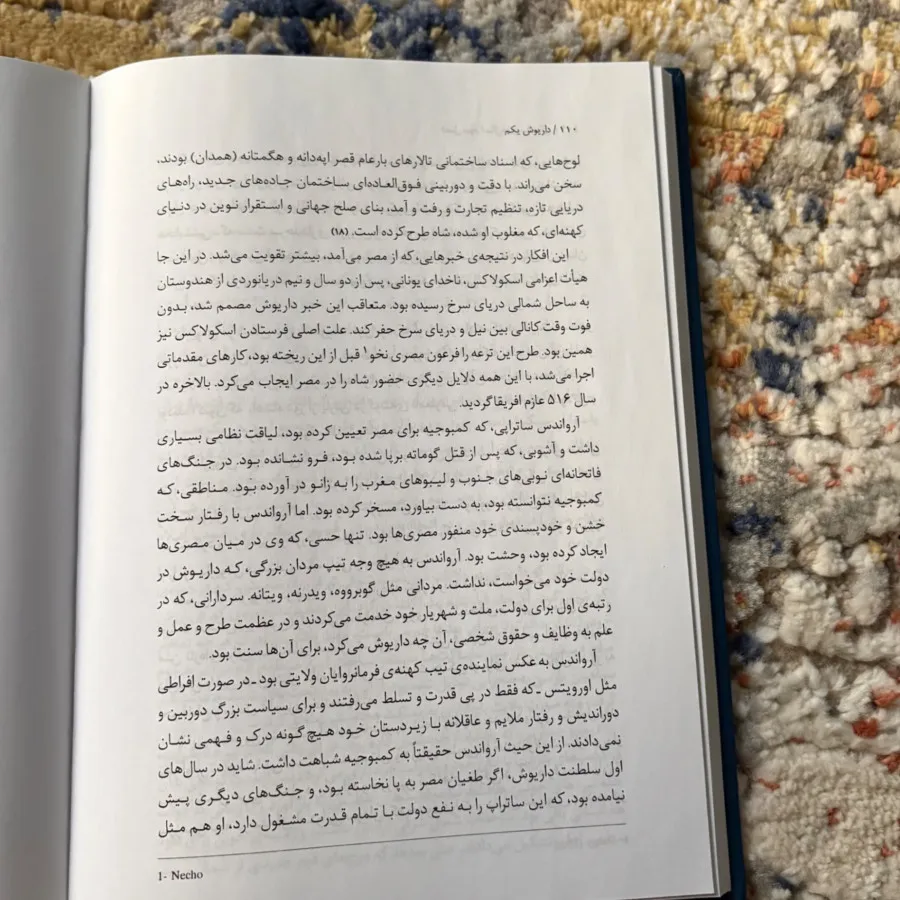 ۱۱۰ / داریوش یکم
لوح‌هایی، که اسناد ساختمانی تالارهای بارعام قصر اپه‌دانه و هگمتانه (همدان) بودند،
سخن می‌راند. با دقت و دوربینی فوق‌العاده‌ای ساختمان جاده‌های جدید، راه‌های
دریایی تازه، تنظیم تجارت و رفت و آمد، بنای صلح جهانی و استقرار نوین در دنیای
کهنه‌ای، که مغلوب او شده، شاه طرح کرده است. (۱۸)
این افکار در نتیجه‌ی خبرهایی، که از مصر می‌آمد، بیشتر تقویت می‌شد. در این جا
هیأت اعزامی اسکولاکس، ناخدای یونانی، پس از دو سال و نیم دریانوردی از هندوستان
به ساحل شمالی دریای سرخ رسیده بود. متعاقب این خبر داریوش مصمم شد، بدون
فوت وقت کانالی بین نیل و دریای سرخ حفر کند. علت اصلی فرستادن اسکولاکس نیز
همین بود. طرح این ترعه را فرعون مصری نخو۱ قبل از این ریخته بود، کارهای مقدماتی
اجرا می‌شد، با این همه دلایل دیگری حضور شاه را در مصر ایجاب می‌کرد. بالاخره در
سال ۵۱۶ عازم افریقا گردید.
آرواندس ساتراپی، که کمبوجیه برای مصر تعیین کرده بود، لیاقت نظامی بسیاری
داشت و آشوبی، که پس از قتل گوماته برپا شده بود، فرو نشانده بود. در جنگ‌های
فاتحانه‌ای نوبی‌های جنوب و لیبوهای مغرب را به زانو در آورده بود. مناطقی، که
کمبوجیه نتوانسته بود، به دست بیاورد، مسخر کرده بود. اما آرواندس با رفتار سخت
خشن و خودپسندی خود منفور مصری‌ها بود. تنها حسی، که وی در میان مصری‌ها
ایجاد کرده بود، وحشت بود. آرواندس به هیچ وجه تیپ مردان بزرگی، که داریوش در
دولت خود می‌خواست، نداشت. مردانی مثل گوبرووه، ویدرنه، ویتانه. سردارانی، که در
رتبه‌ی اول برای دولت، ملت و شهریار خود خدمت می‌کردند و در عظمت طرح و عمل و
علم به وظایف و حقوق شخصی، آن چه داریوش می‌کرد، برای آن‌ها سنت بود.
آرواندس به عکس نماینده‌ی تیپ کهنه‌ی فرمانروایان ولایتی بود ـ در صورت افراطی
مثل اورویتس ـ که فقط در پی قدرت و تسلط می‌رفتند و برای سیاست بزرگ دوربین و
دوراندیش و رفتار ملایم و عاقلانه با زیردستان خود هیچ گونه درک و فهمی نشان
نمی‌دادند. از این حیث آرواندس حقیقتاً به کمبوجیه شباهت داشت. شاید در سال‌های
اول سلطنت داریوش، اگر طغیان مصر به پا نخاسته بود، و جنگ‌های دیگری پیش
نیامده بود، که این ساتراپ را به نفع دولت با تمام قدرت مشغول دارد، او هم مثل
1- Necho